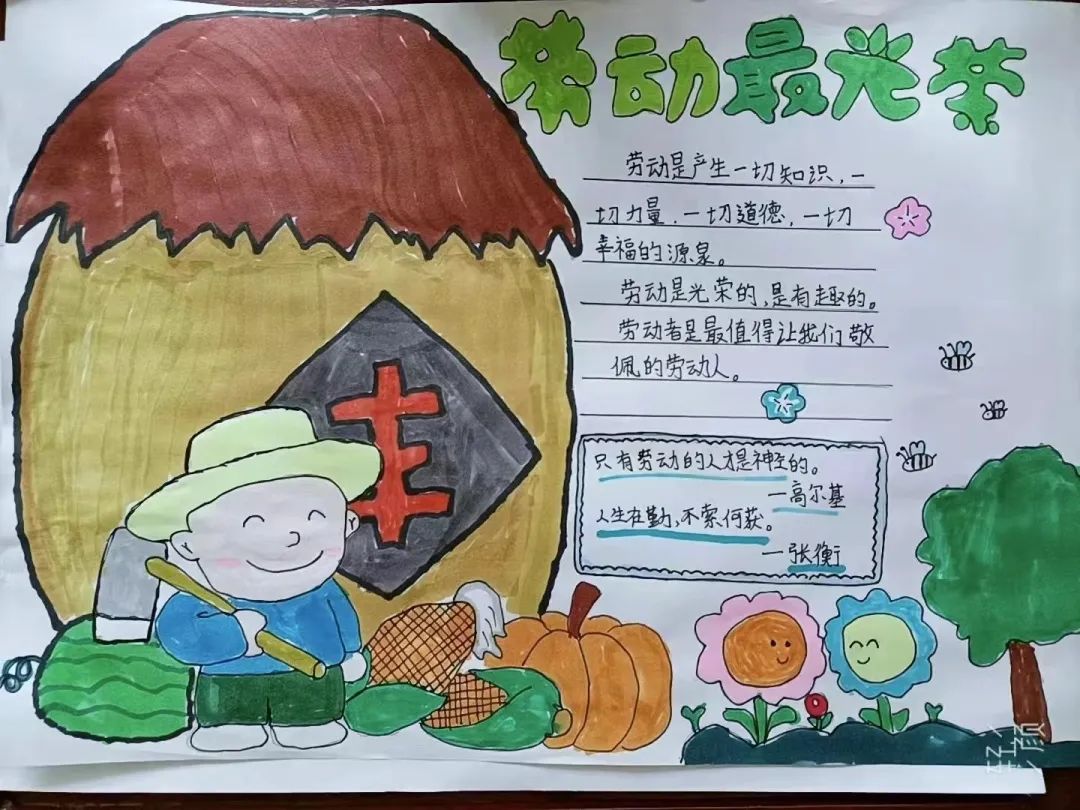 劳动最光荣
劳动是产生一切知识，一
切力量，一切道德，一切
幸福的源泉。
劳动是光荣的，是有趣的。
劳动者是最值得让我们敬
佩的劳动人。
只有劳动的人才是神圣的。
—高尔基
人生在勤，不索何获。
—张衡
丰
轻颜